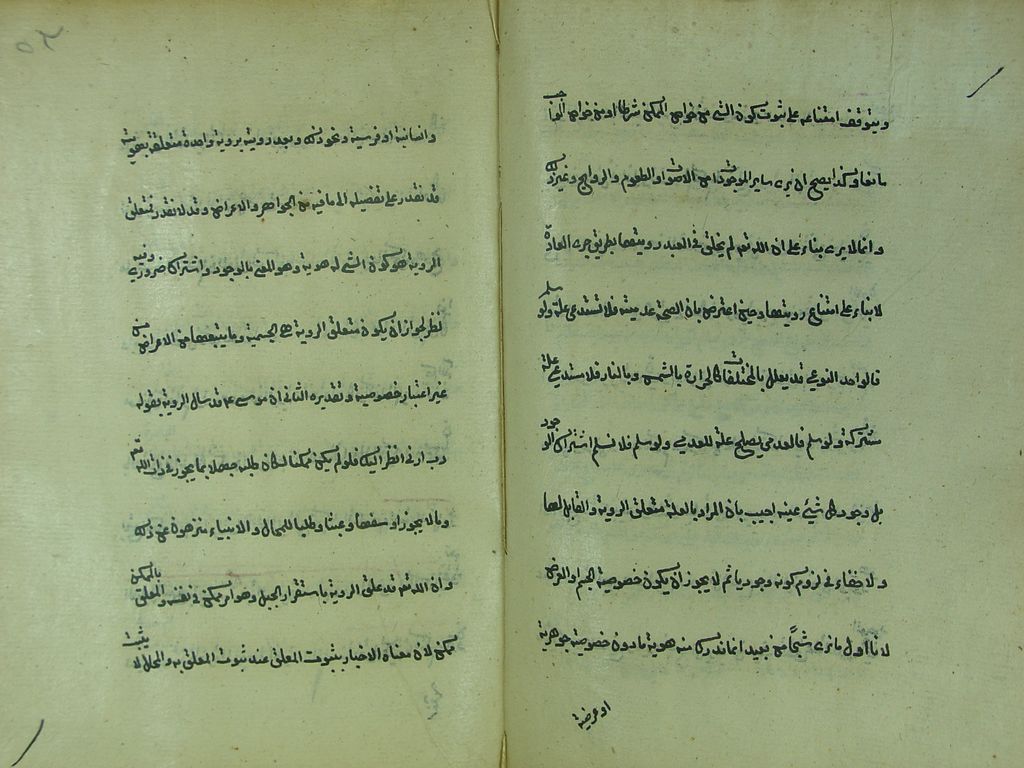 ويتوقف امتناعه على ثبوت كون الشئ من خواص الممكن شرطا او من خواص الواجب
مانعا وكذا يصح ان يرى ساير الموجودات من الاصوات والطعوم والروايح وغير ذلك
وانما لا يرى بناء على ان الله تعم لم يخلق في العبد رويتها بطريق جرى العادة
لا بناء على امتناع رويتها وحين اعترض بان الصحة عدمية فلا تستدعى علة ولو سلم
فالواحد النوعى قد يعلل بالمختلفات كالحرارة بالشمس وبالنار فلا يستدعى علة
مشتركة ولو سلم فالعدمى يصلح علة للعدمى ولو سلم فلا نسلم اشتراك الوجود
بل وجود كل شيئ عينه اجيب بان المراد بالعلة متعلق الروية والقابل لها
ولا خفاء في لزوم كونه وجوديا ثم لا يجوز ان يكون خصوصية الجسم او العرض
لانا اول ما نرى شبحًا من بعيد انما ندرك منه هوية ما دون خصوصية جوهرية
او عرضية
وانسانية او فرسية ونحو ذلك وبعد روية بروية واحدة متعلقة بهويته
قد نقدر على تفصيله الى ما فيه من الجواهر والاعراض وقد لا نقدر فمتعلق
الروية هو كون الشئ له هوية وهو المعنى بالوجود واشتراكه ضرورى وفيه
نظر لجواز ان يكون متعلق الروية هى الجسمية وما يتبعها من الاعراض من
غير اعتبار خصوصية وتقديره الثانى ان موسى عم قد سال الروية بقوله
رب ارنى انظر اليك فلو لم يكن ممكنا لكان طلبه جهلا بما يجوز في ذات الله تعم
وبالا يجوز او سفها وعبثا وطلبا للمحال والانبياء منزهون عن ذلك
وان الله تعم قد علق الروية باستقرار الجبل وهو امر ممكن في نفسه والمعلق بالممكن
ممكن لان معناه الاخبار بثبوت المعلق عند ثبوت المعلق به والمحال لا يثبت